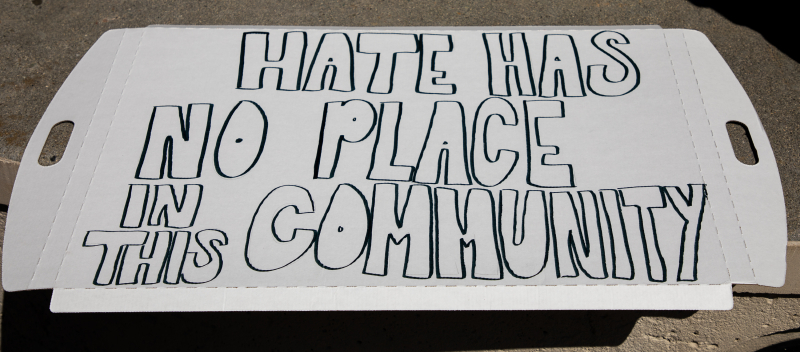 HATE HAS
NO PLACE
IN THIS COMMUNITY